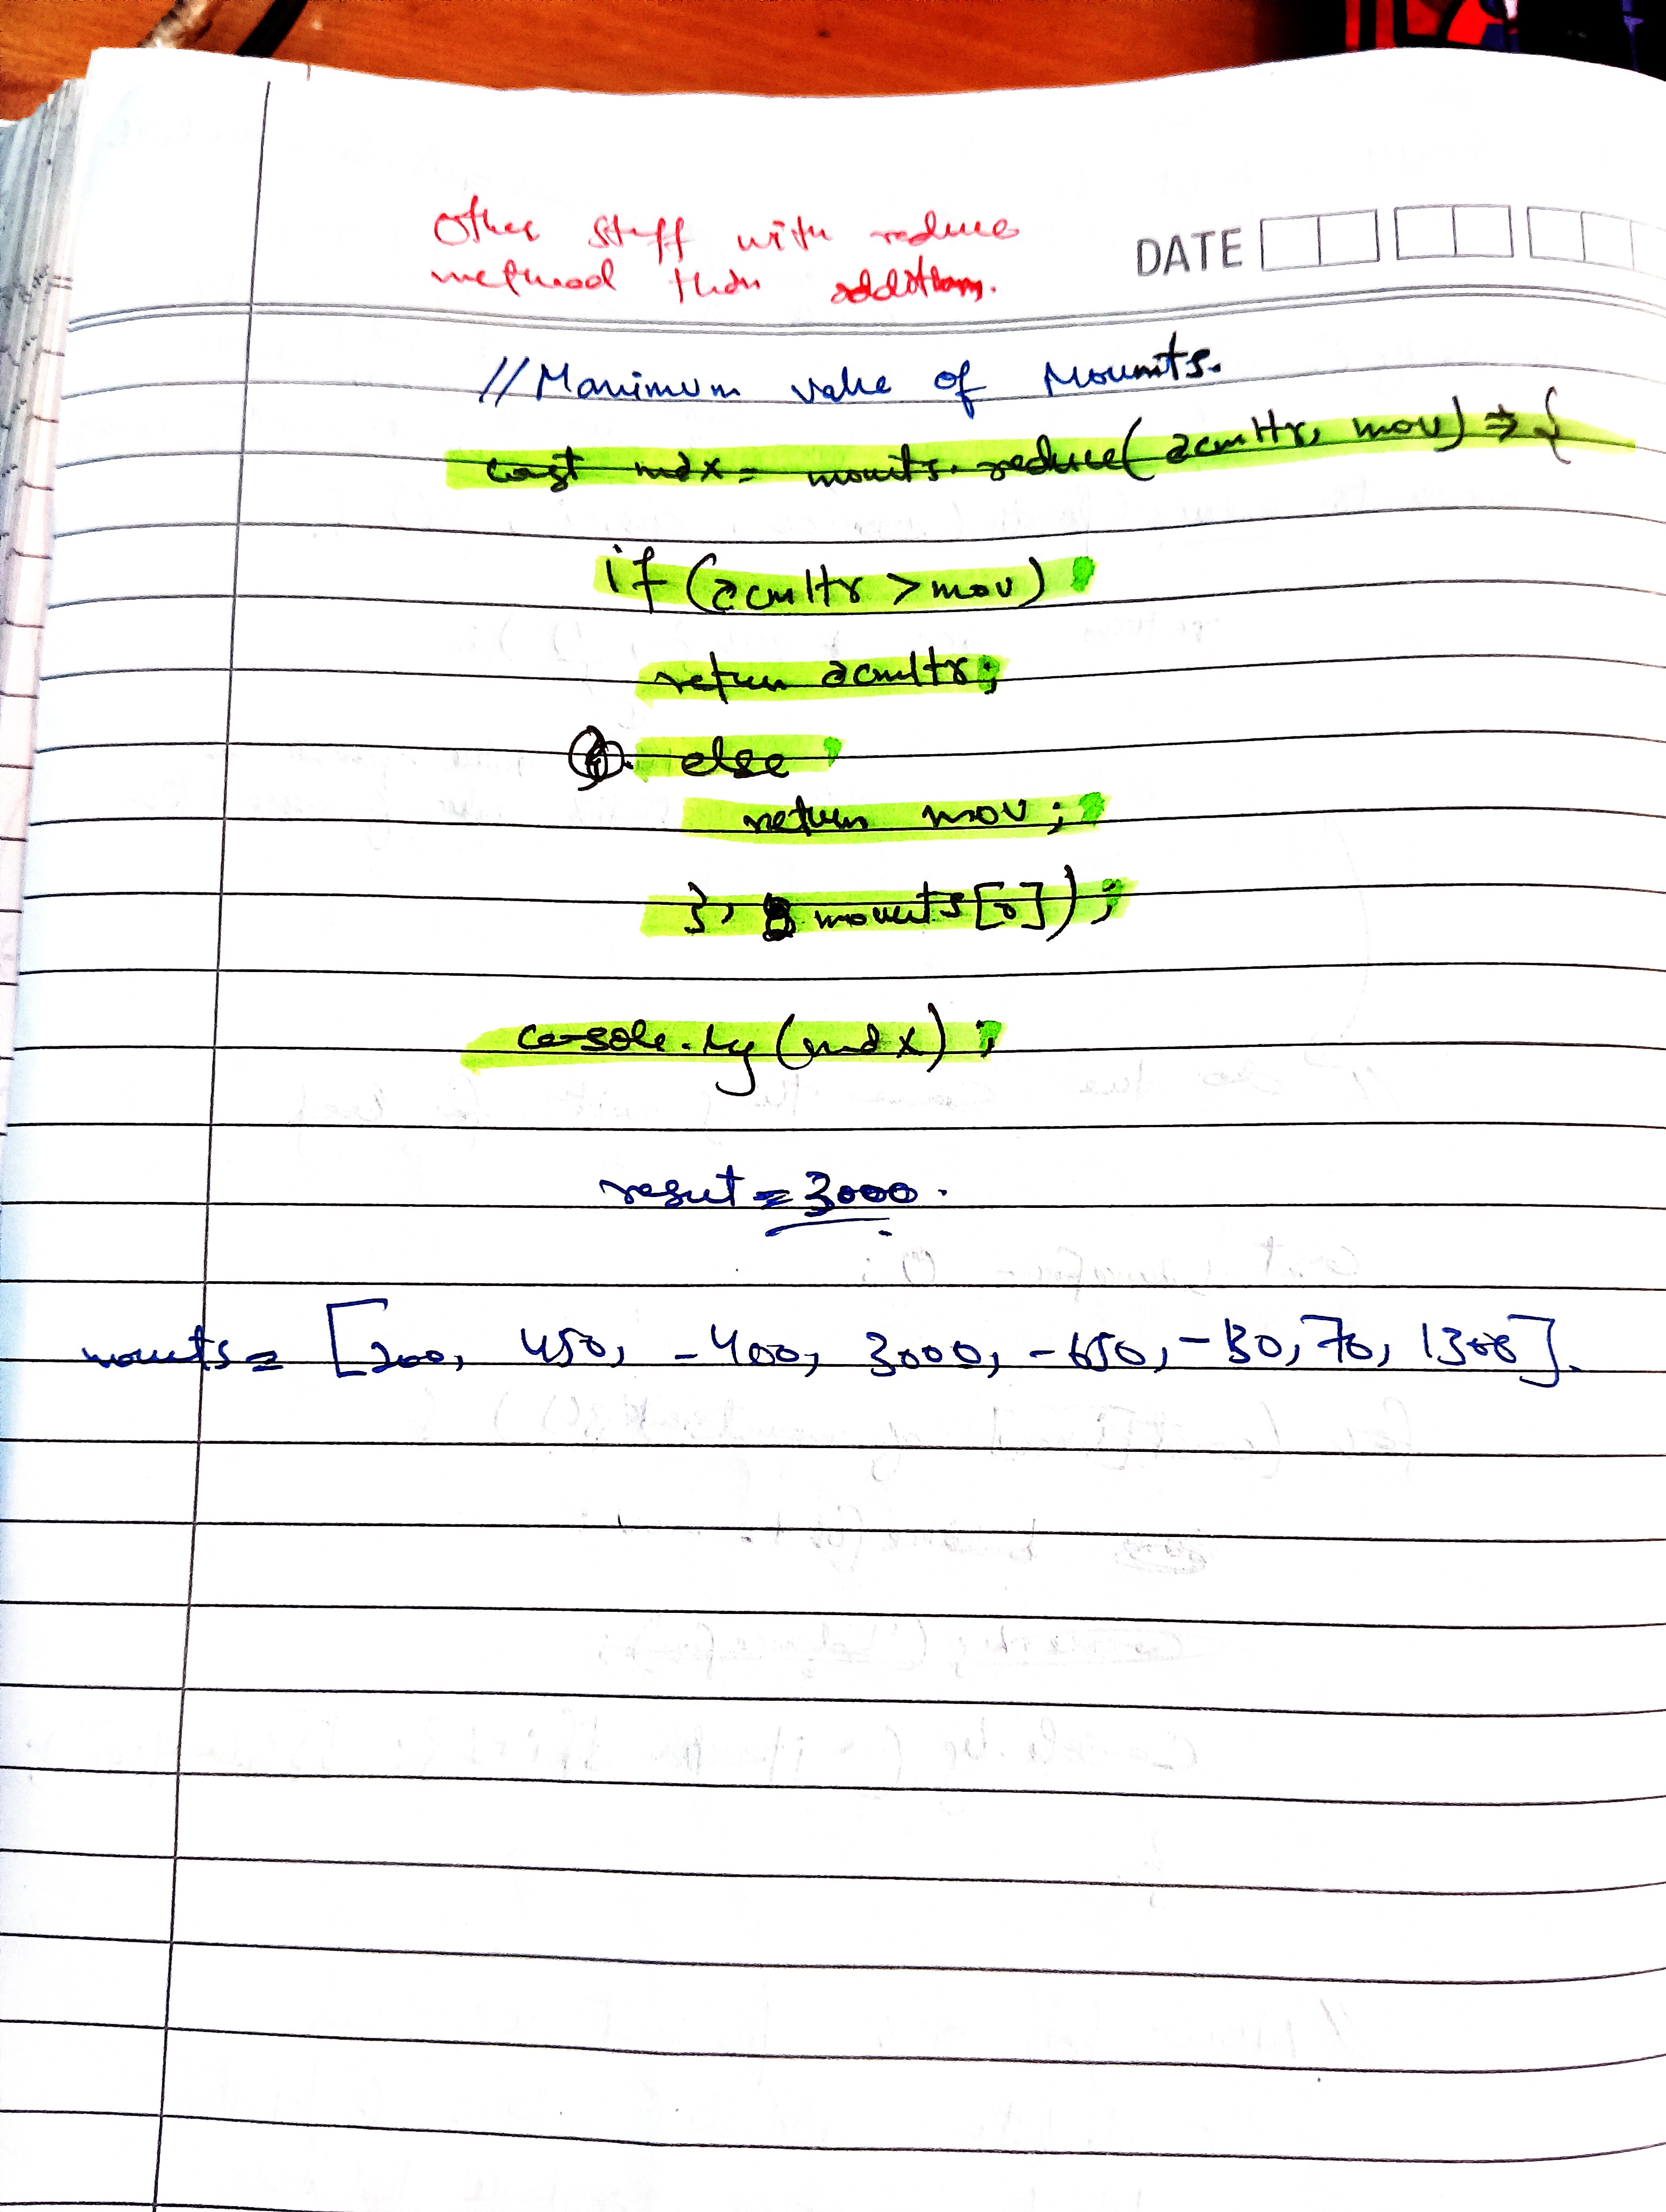 Other stuff with reduce
method than addition.
DATE
//Maximum value of Mounts.
const max = mounts.reduce(acmltr, mov) => {
if (acmltr > mov)
return acmltr;
else
return mov;
}, mounts[0]);
console.log(max);
result = 3000.
mounts = [200, 450, -400, 3000, -650, -130, 70, 1300].